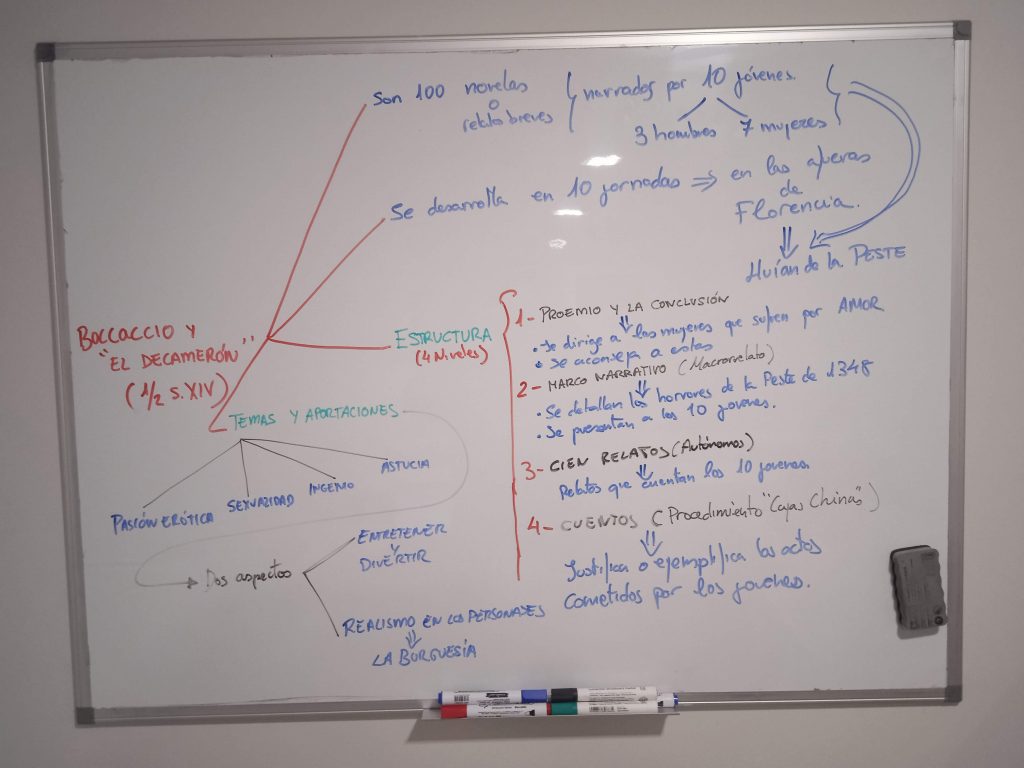 Son 100 novelas
o
relatobreves
narrados por 10 jóvenes.
3 hombres 7 mujeres
Se desarrolla en 10 jornadas ⇒ en las afueras
de
Florencia.
Huían de la PESTE
BOCCACCIO Y
"EL DECAMERÓN"
(1/2 S. XIV)
ESTRUCTURA
(4 Niveles)
1- PROEMIO Y LA CONCLUSIÓN
• Se dirige a las mujeres que sufren por AMOR
• Se aconseja a estas
2- MARCO NARRATIVO (Macrorrelato)
• Se detallan los horrores de la Peste de 1348
• Se presentan a los 10 jovenes.
3- CIEN RELATOS (Autónomos)
Relatos que cuentan los 10 jovenes.
4- CUENTOS (Procedimiento "Cajas Chinas")
Justifica o ejemplifica los actos
cometidos por los jovenes.
TEMAS Y APORTACIONES
PASIÓN ERÓTICA
SEXUALIDAD
INGENIO
ASTUCIA
Dos aspectos
ENTRETENER
Y
DIVERTIR
REALISMO EN LOS PERSONAJES
LA BURGUESÍA